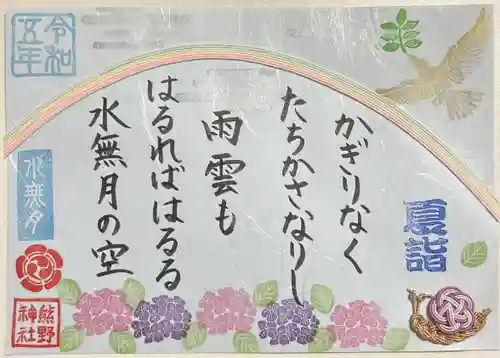 令和
五年
夏詣
かぎりなく
たちかさなりし
雨雲も
はるればはるる
水無月の空
水無月
熊野
神社